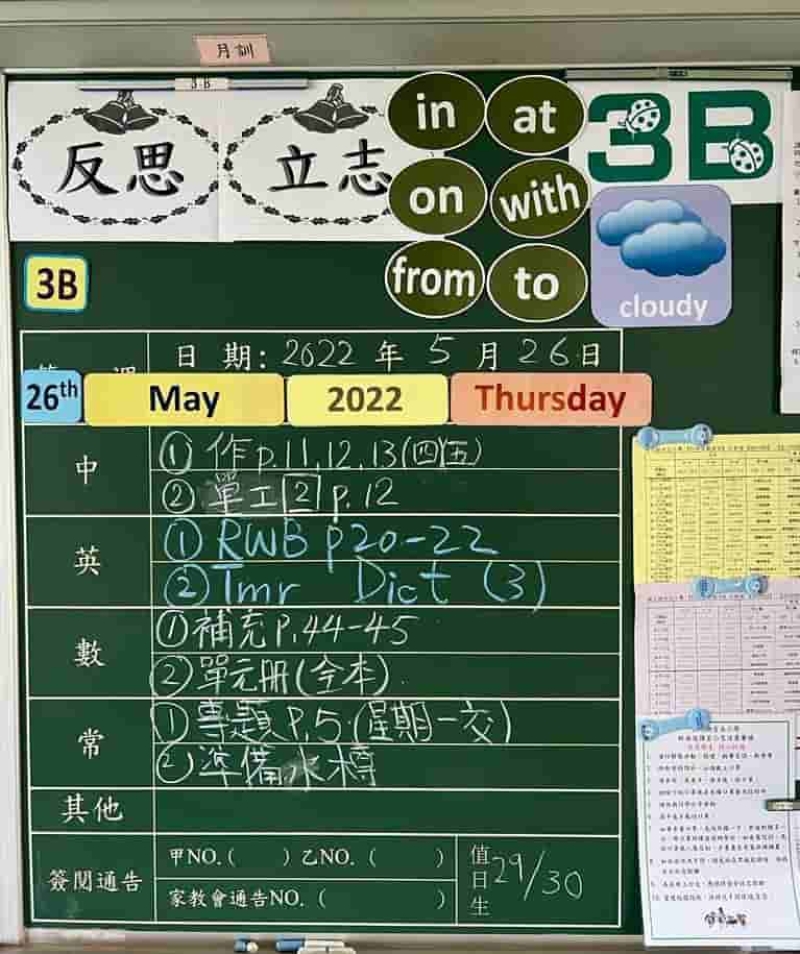 月訓
3-B
反思 立志
in at
on with
from to
3B
cloudy
3B
日期：2022年5月26日
26th May 2022 Thursday
中
① 作p.11,12,13(四)(五)
② 單工[2] p.12
英
① RWB p20-22
② Tmr Dict (3)
數
① 補充P.44-45
② 單元冊(全本)
常
① 專題P.5 (星期一交)
② 準備水樽
其他
簽閱通告
甲NO.( ) 乙NO.( )
家教會通告NO.( )
值日生 29/30